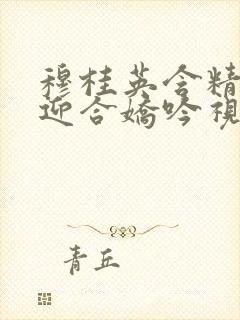 穆桂英含精
迎合娇吟视
青丘